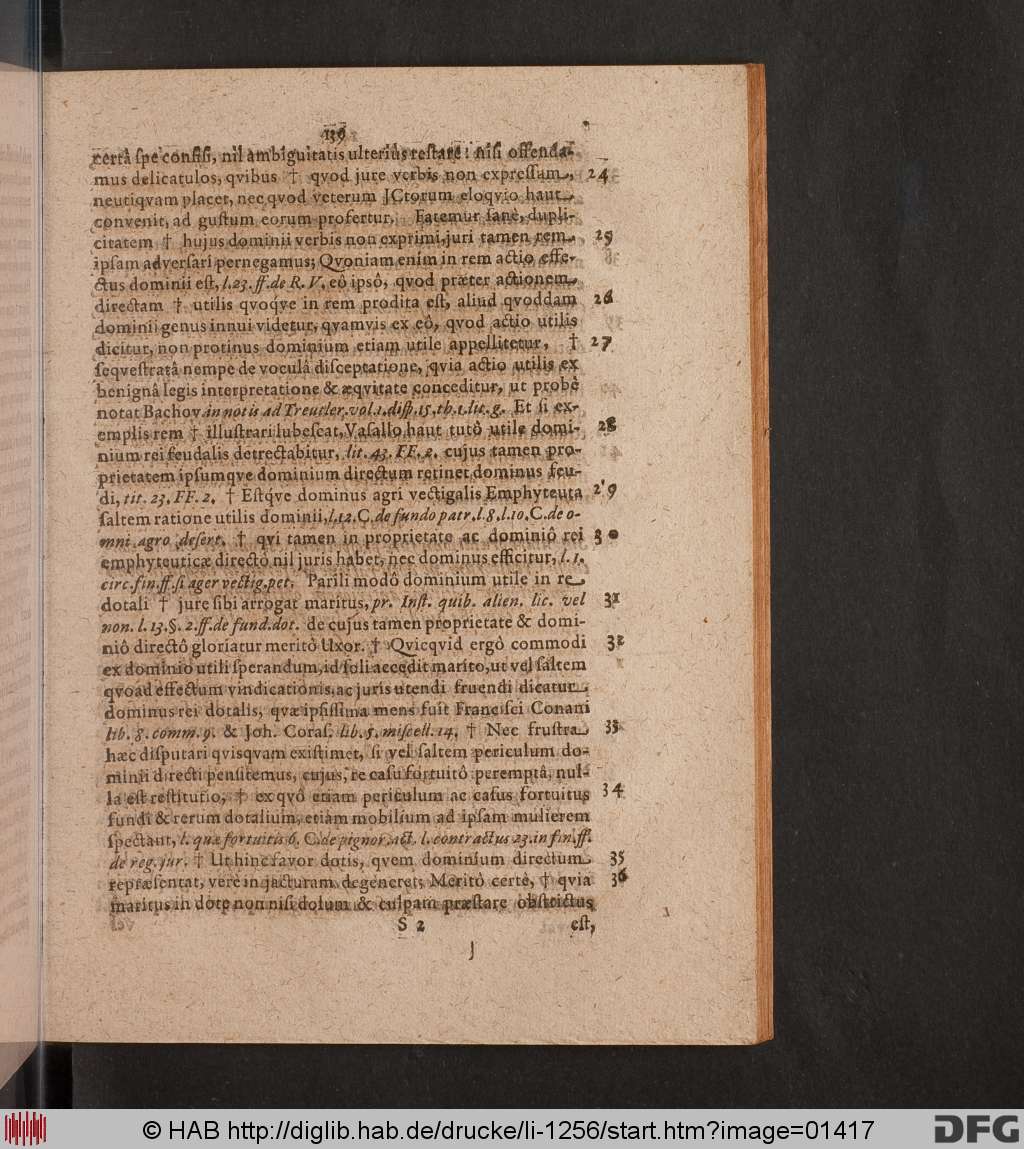 139
certâ ſpe confiſi, nil ambiguitatis ulteriùs reſtare: niſi offenda-
mus delicatulos, qvibus † qvod jure verbis non expreſſam, 24
neutiqvam placet, nec qvod veterum JCtorum eloqvio haut
convenit, ad guſtum eorum profertur, Fatemur ſanè, dupli-
citatem † hujus dominii verbis non exprimi, juri tamen rem 25
ipſam adverſari pernegamus; Qvoniam enim in rem actio effe-
ctus dominii eſt, l. 23. ff. de R. V. eô ipsô, qvod præter actionem
directam † utilis qvoqve in rem prodita eſt, aliud qvoddam 26
dominii genus innui videtur, qvamvis ex eô, qvod actio utilis
dicitur, non protinus dominium etiam utile appellitetur, † 27
ſeqveſtratâ nempe de voculâ diſceptatione, qvia actio utilis ex
benignâ legis interpretatione & æqvitate conceditur, ut probè
notat Bachov. in notis ad Treutler. vol. 1. diſp. 15. th. 1. lit. g. Et ſi ex-
emplis rem † illuſtrari lubeſcat, Vaſallo haut tutò utile domi- 28
nium rei feudalis detrectabitur, tit. 43. FF. 2. cujus tamen pro-
prietatem ipſumqve dominium directum retinet dominus feu-
di, tit. 23. FF. 2. † Eſtqve dominus agri vectigalis Emphyteuta 29
ſaltem ratione utilis dominii, l. 12. C. de fundo patr. l. 8. l. 10. C. de o-
mni agro deſert. † qvi tamen in proprietate ac dominiô rei 30
emphyteuticæ directô nil juris habet, nec dominus efficitur, l. 1.
circ. fin. ff. ſi ager vectig. pet. Parili modô dominium utile in re
dotali † jure ſibi arrogat maritus, pr. Inſt. quib. alien. lic. vel 31
non. l. 13. §. 2. ff. de fund. dot. de cujus tamen proprietate & domi-
niô directô gloriatur meritò Uxor. † Qvicqvid ergò commodi 32
ex dominio utili ſperandum, id ſoli accedit marito, ut vel ſaltem
qvoad effectum vindicationis, ac juris utendi fruendi dicatur
dominus rei dotalis, qvæ ipſiſſima mens fuit Franciſci Conani
lib. 8. comm. 9. & Joh. Coraſ. lib. 5. miſcell. 14. † Nec fruſtra 33
hæc diſputari qvisqvam exiſtimet, ſi vel ſaltem periculum do-
minii directi penſitemus, cujus, re caſu fortuitô peremptâ, nul-
la eſt reſtitutio, † ex qvô etiam periculum ac caſus fortuitus 34
fundi & rerum dotalium, etiam mobilium ad ipſam mulierem
ſpectant, l. quæ fortuitis 6. C. de pignor. act. l. contractus 23. in fin. ff.
de reg. jur. † Ut hinc favor dotis, qvem dominium directum 35
repræſentat, verè in jacturam degeneret; Meritò certè, † qvia 36
maritus in dote non niſi dolum & culpam præſtare obſtrictus
S 2 eſt,
© HAB http://diglib.hab.de/drucke/li-1256/start.htm?image=01417
DFG